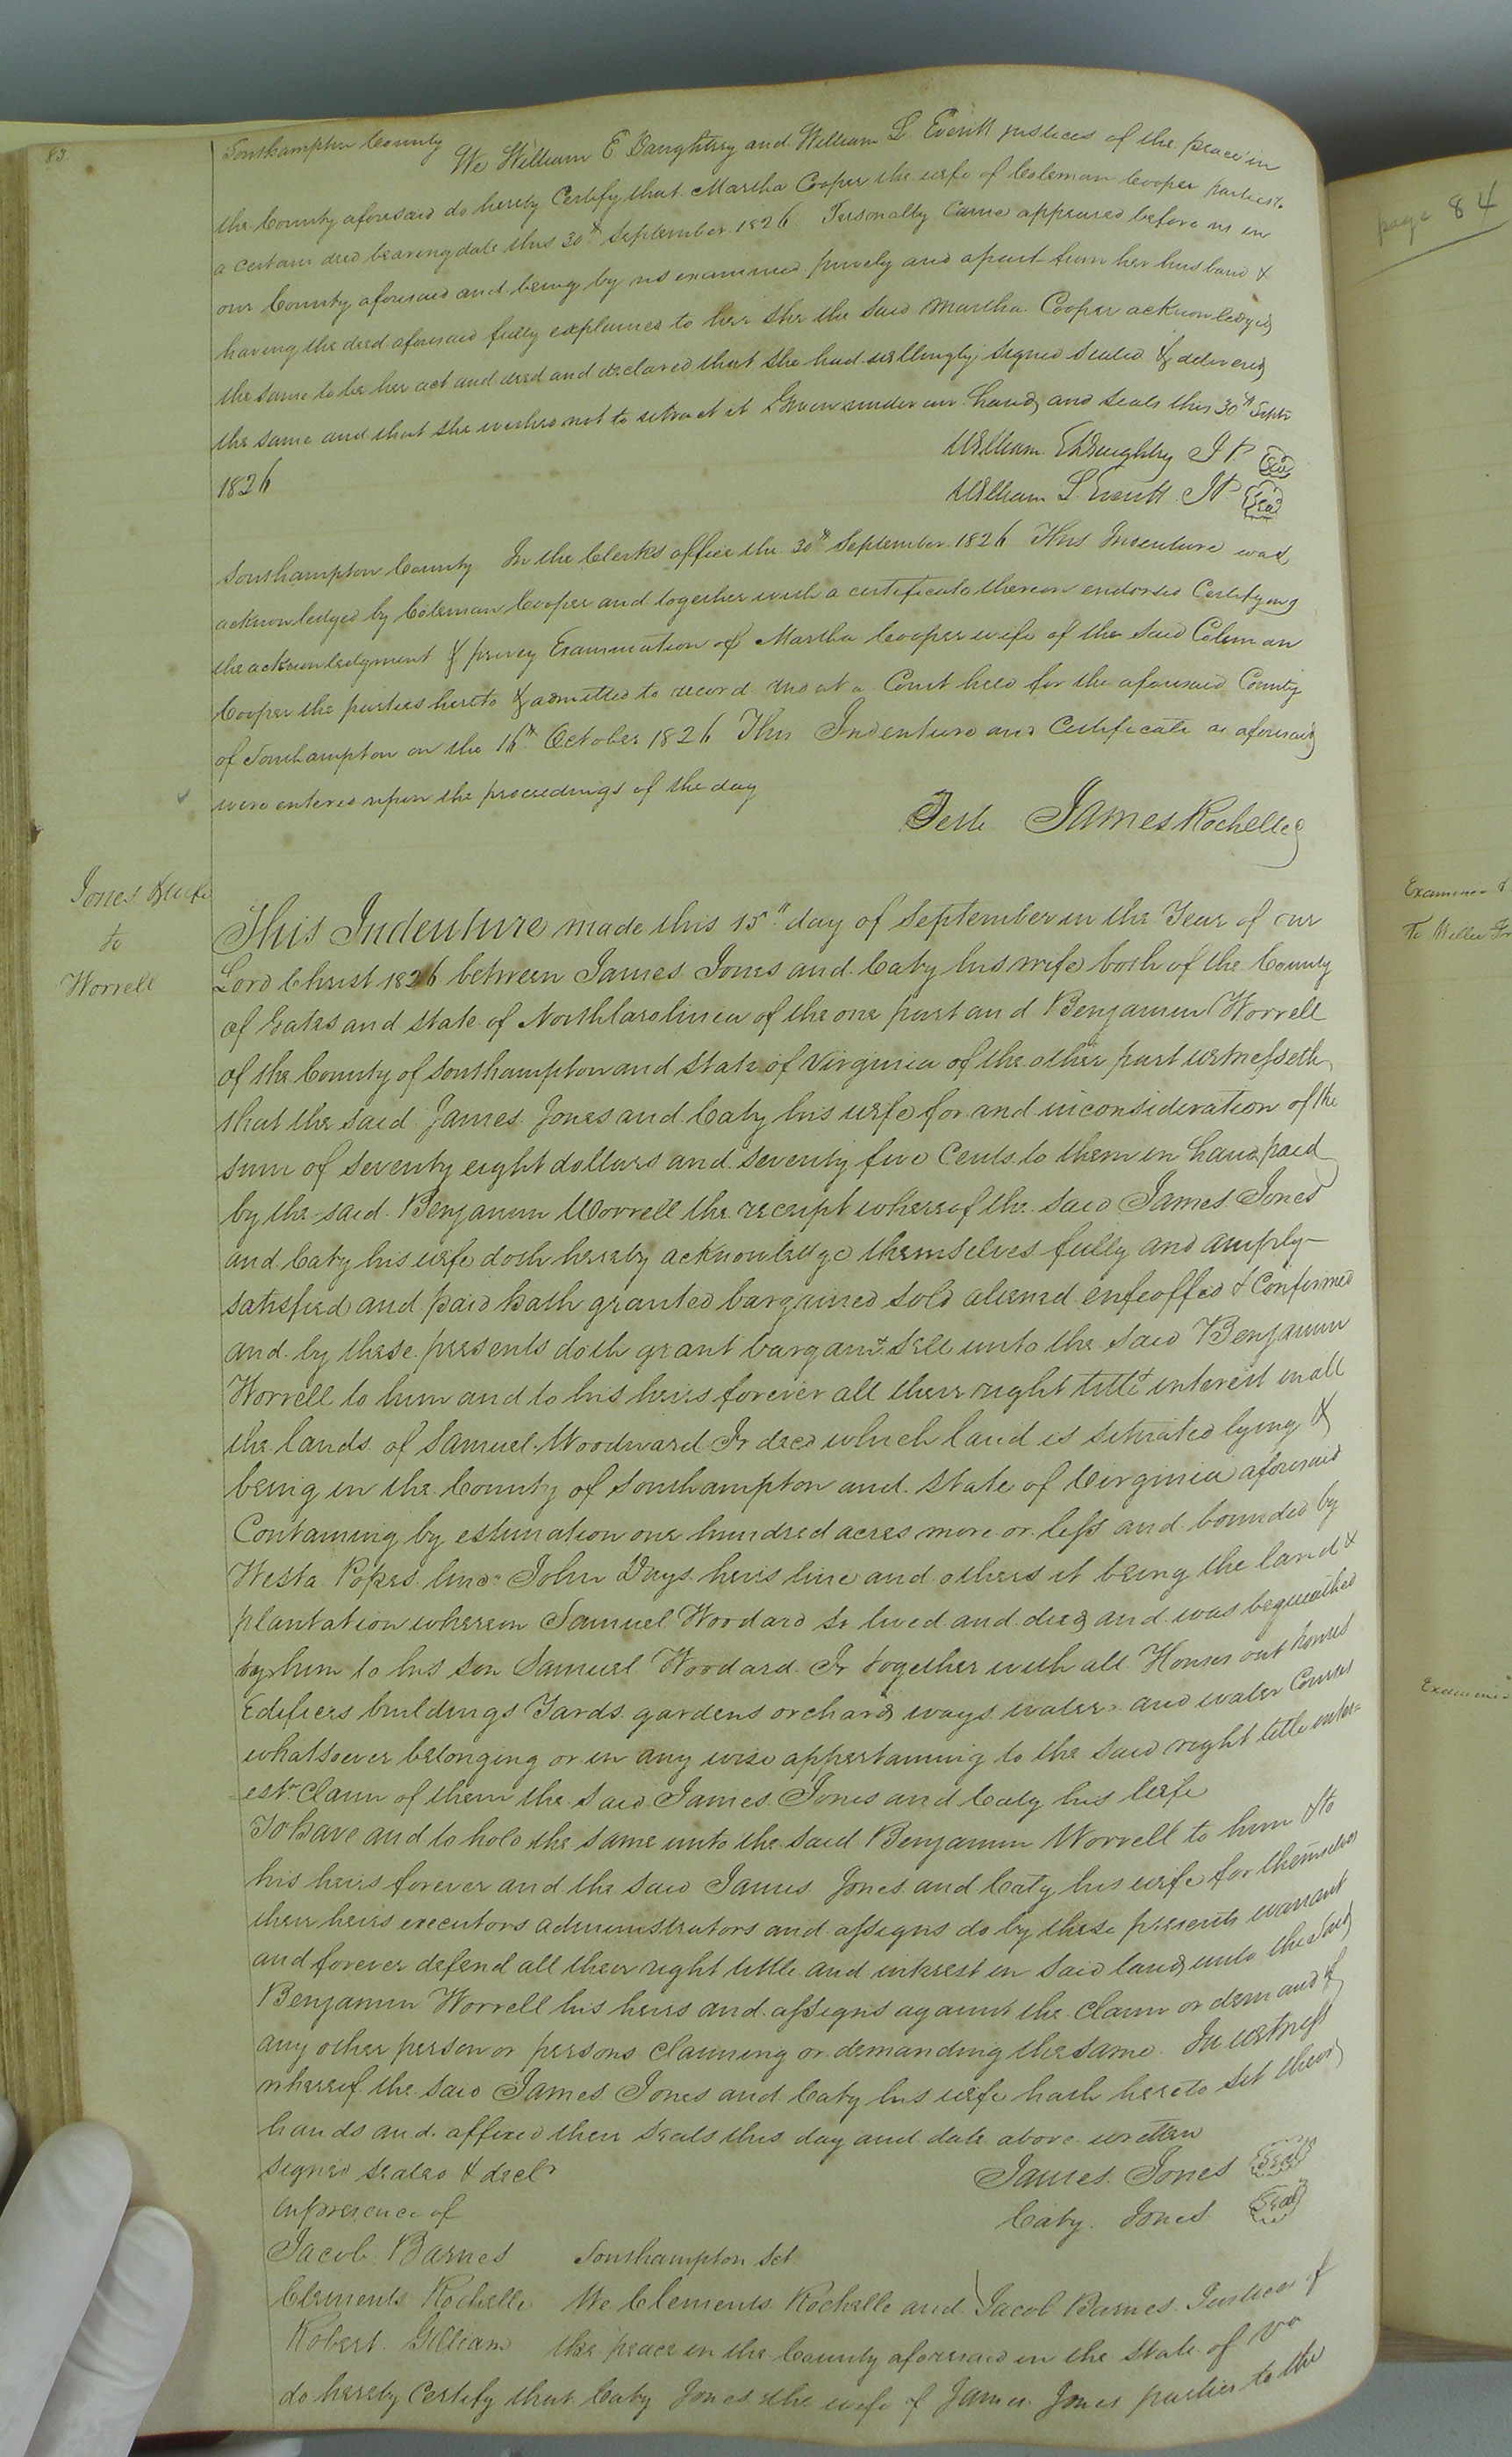 83
Southampton County We William E Daughtrey and William L. Everitt justices of the peace in
the County aforesaid do hereby Certify that Martha Cooper the wife of Coleman Cooper parties to
a certain deed bearing date this 30th September 1826 Personally Came appeared before us in
our County aforesaid and being by us examined privily and apart from her husband &
having the deed aforesaid fully explained to her She the Said Martha Cooper acknowledged
the same to be her act and deed and declared that she had willingly signed sealed & delivered
the same and that she wishes not to retract it Given under our hands and seals this 30th Septr
1826
William E Daughtrey J P. Seal
William L. Everitt J P. Seal
Southampton County In the Clerks office the 30th September 1826 This Indenture was
acknowledged by Coleman Cooper and together with a certificate thereon endorsed Certifying
the acknowledgment & privey Examination of Martha Cooper wife of the said Coleman
Cooper the parties hereto & admitted to record And at a Court held for the aforesaid County
of Southampton on the 16th October 1826 This Indenture and Certificate as aforesaid
were entered upon the proceedings of the day
Teste James Rochelle
Jones & wife
to
Worrell
This Indenture made this 15th day of September in the Year of our
Lord Christ 1826 between James Jones and Caty his wife both of the County
of Gates and state of North Carolinia of the one part and Benjamin Worrell
of the County of Southampton and State of Virginia of the other part witnesseth
that the said James Jones and Caty his wife for and in consideration of the
sum of seventy eight dollars and seventy five Cents to them in hand paid
by the said Benjamin Worrell the receipt whereof the said James Jones
and Caty his wife doth hereby acknowledge themselves fully and amply
satisfied and paid hath granted bargained sold aliened enfeoffed & Confirmed
and by these presents doth grant bargain & sell unto the said Benjamin
Worrell to him and to his heirs forever all their right title & interest in all
the lands of Samuel Woodward Jr decd which land is situated lying &
being in the County of Southampton and State of Virginia aforesaid
Containing by estimation one hundred acres more or less and bounded by
Westa Popes line John Days heirs line and others it being the land &
plantation whereon Samuel Woodard Sr lived and died and was bequeathed
by him to his son Samuel Woodard Jr together with all Houses out houses
Edifiers buildings Yards gardens orchards ways waters and water Courses
whatsoever belonging or in any wise appertaining to the said right title inter=
est & Claim of them the Said James Jones and Caty his wife
To have and to hold the same unto the said Benjamin Worrell to him & to
his heirs forever and the said James Jones and Caty his wife for themselves
their heirs executors administrators and assigns do by these presents warrant
and forever defend all their right title and interest in said land unto the said
Benjamin Worrell his heirs and assigns against the Claim or demand of
any other person or persons Claiming or demanding the same In witness
whereof the said James Jones and Caty his wife hath hereto set their
hands and affixed their seals this day and date above written
Signed sealed & decl
in presence of
James Jones Seal
Caty Jones Seal
Jacob Barnes
Clements Rochelle
Robert Gilliam
Southampton Sct
We Clements Rochelle and Jacob Barnes Justices of
the peace in the County aforesaid in the State of Va
do hereby Certify that Caty Jones the wife of James Jones parties to the
page 84
Examined &
To Willer Jr
Examined